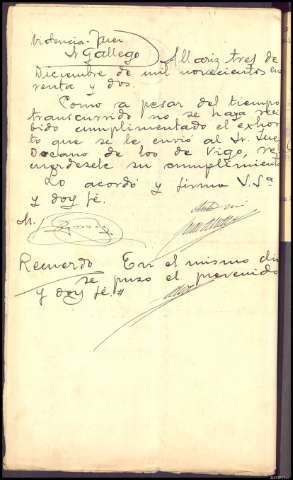 Providencia. Juez
Sr Gallego
Allariz tres de
Diciembre de mil novecientos cua
renta y dos.
Como a pesar del tiempo
transcurrido no se haya reci
bido cumplimentado el exhor
to que se le envió al Sr. Juez
Decano de los de Vigo, re
cuérdesele su cumplimiento
Lo acordó y firma V.Sª
y doy fé.
M.
Ante mi
Recuerdo En el mismo dia
se puso el prevenido
y doy fé.